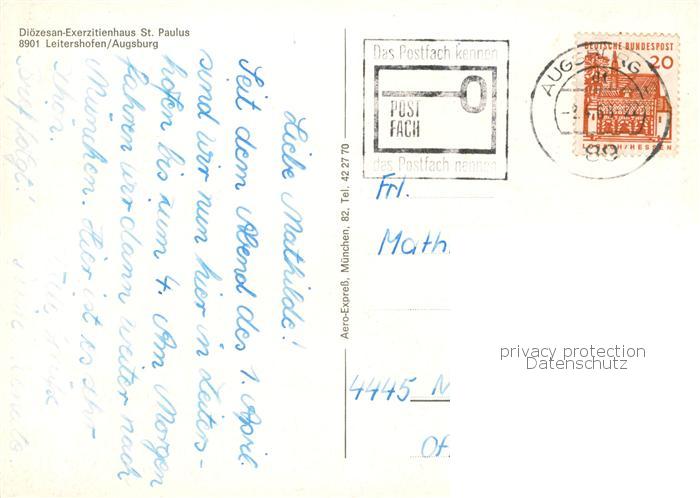 Diözesan-Exerzitienhaus St. Paulus
8901 Leitershofen/Augsburg
Liebe Mathilde!
Seit dem Abend des 1. April
sind wir nun hier in Leiters-
hofen bis zum 4. Am Morgen
fahren wir dann weiter nach
München. Hier ist es sehr
schön.
Brief folgt!
Aero-Expreß, München, 82, Tel. 42 27 70
Das Postfach kennen
POST
FACH
das Postfach nennen
AUGSBURG
89
DEUTSCHE BUNDESPOST
20
LORSCH/HESSEN
Frl.
Math
4445 N
privacy protection
Datenschutz